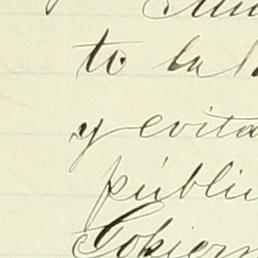 to la
y evita
públi
Gobiern